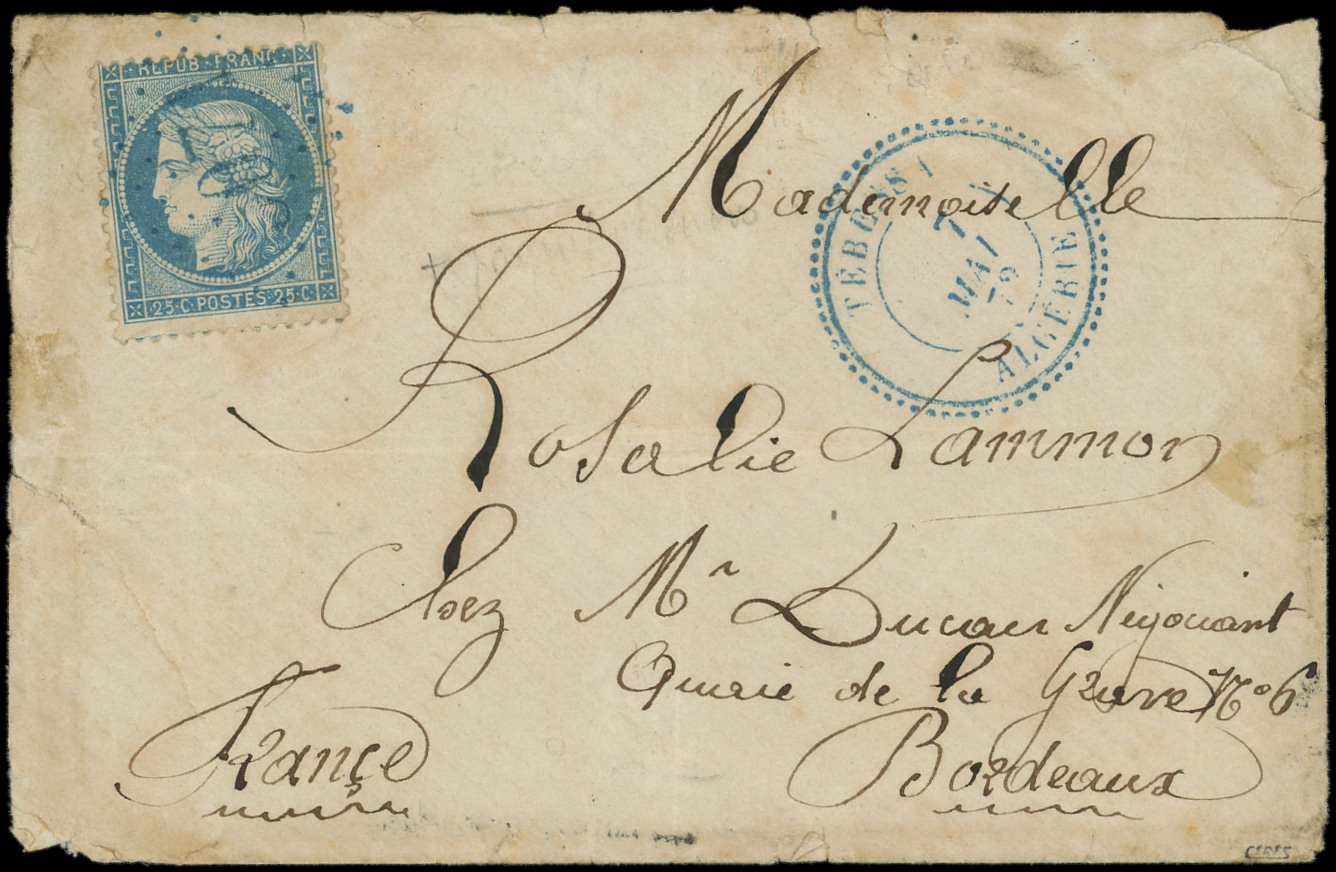 REPUB FRANC
25 · C. POSTES 25 · C
TÉBESSA
7
MAI
79
ALGÉRIE
Mademoiselle
Rosalie Lammon
Chez Mr Ducau Négociant
Quaie de la Grave No 6
Bordeaux
France
CERES